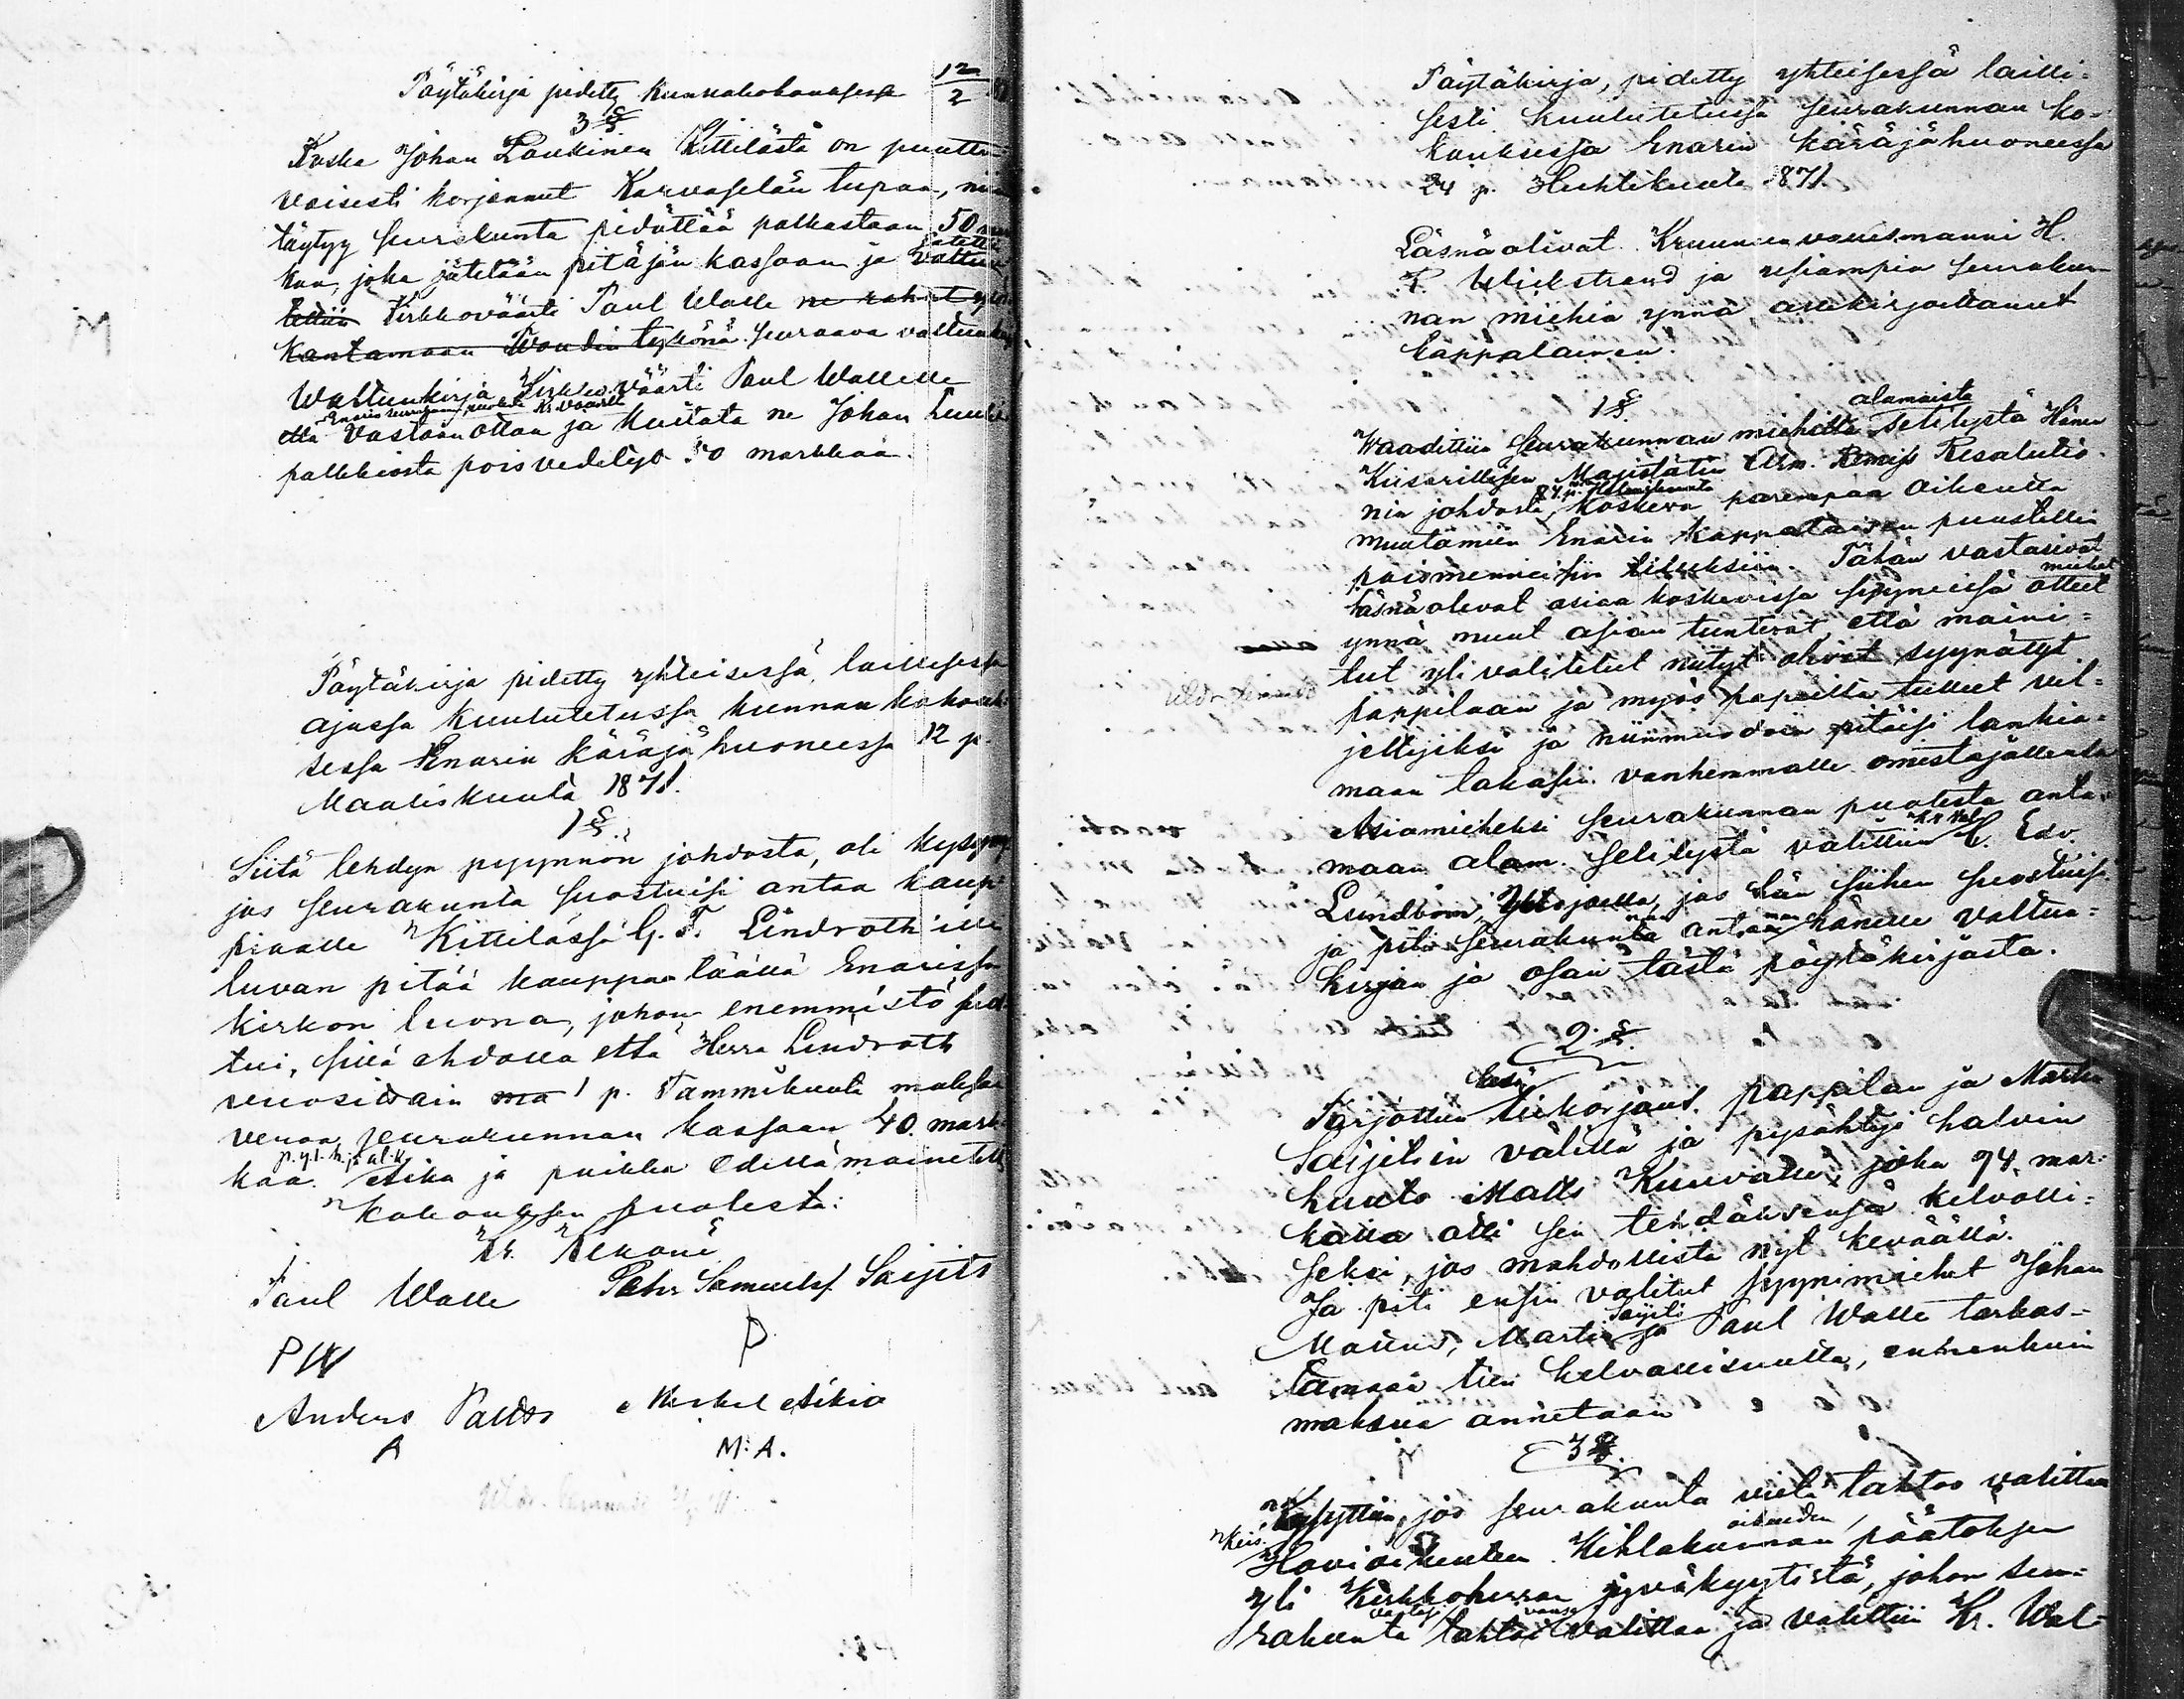 Pöytäkirja pidetty kunnakokouksessa 12/2
3 §
Koska Johan Laukinen Kittilästä on puuttu-
vaisesti korjannut Karvaselän tupaa, niin
täytyy seurakunta pidättää palkastaan 50 mar
kaa, joka jätetään pitäjän kassaan ja valtuu
tettiin Kirkkoväärti Paul Walle ne rahat
kantamaan Woudin tykönä seuraava valtuukirja
Waltuukirja Kirkkoväärti Paul Wallelle
että Enaris seurakunnan puolesta Kr. Voudilta vastaan ottaa ja kuitata ne Johan
palkkiosta pois vedetyt 50 markkaa.
Pöytäkirja pidetty yhteisessä, laillisessa
ajassa kuulutetussa kunnan kokouk-
sessa Enarin käräjähuoneessa 12 p.
Maaliskuuta 1871.
1 §.
Siitä tehdyn pyynnön johdosta, oli kysymys
jos seurakunta suostuisi antaa kaup-
piaalle Kittilässä G. F. Lindroth'ille
luvan pitää kauppaa täällä Enarissa
kirkon luona, johon enemmistö suos-
tui, sillä ehdolla että Herra Lindroth
vuosittain ma 1 p. Tammikuuta maksaa
venoa, seurakunnan kassaan 40. mark-
kaa. p.y.l.k. ja al.k. Aika ja paikka edellämainitut
Kokouksen puolesta:
Paul Walle Petr Samuelss. Saijets
PW P
Anders Paltto Michel Aikio
A M. A.
M
Pöytäkirja, pidetty yhteisessä lailli-
sesti kuulutetussa seurakunnan ko-
kouksessa Enarin käräjähuoneessa
24 p. Huhtikuuta 1871.
Läsnäolivat Kruununvouesmanni H.
P. Wickstrand ja useampia seurakun-
nan miehiä ynnä allekirjoittanut
kappalainen.
1 §.
Waadittiin seurakunnan miehiltä alamaista selitystä Hänen
Keisarillisen Majistätin Arm. Remiss Resolutio-
nin johdosta, koskeva parempaa oikeutta
muutamiin Enarin kappalaisen puustellin
poismenneisiin tiluksiin. Tähän vastasivat
läsnäolevat asiaa koskevissa syyneissä olleet miehet
ynnä muut asian tuntevat, että maini-
tut ylivalitetut niityt olivat syynätyt
pappilaan ja myös papeilta tulleet vil-
jellyiksi ja niinmuodoin pitäisi lankia-
maan takasin vanhemmalle omistajallensa
Asiamieheksi seurakunnan puolesta anta-
maan alam. selitystä valittiin C. Edv.
Lundbom, jos hän siihen suostuisi
ja piti seurakunnan antaman hänelle valtuu-
kirjan ja osan tästä pöytäkirjasta.
2 §.
Tarjottiin kesä tiekorjaus pappilan ja Martin
Saijetsin välillä ja pysähtyi halvin
huuto Matts Kuuvalle, joka 94 mar-
kalla otti sen tehdäksensä kelvolli-
seksi, jos mahdollista nyt keväällä.
Ja piti ensin valitut syynimiehet Johan
Mattus, Martin Saijets ja Paul Walle tarkas-
tamaan tien kelvollisuutta, ennenkuin
maksua annetaan
3 §.
Kysyttiin, jos seurakunta vielä tahtoo valittaa
Keis. Hovioikeuteen Kihlakunnan oikeuden päätöksen
yli Kirkkoherran jyväkyytistä, johon seu-
rakunta vastasi tahtovansa valittaa ja valittiin Kr. Wal-